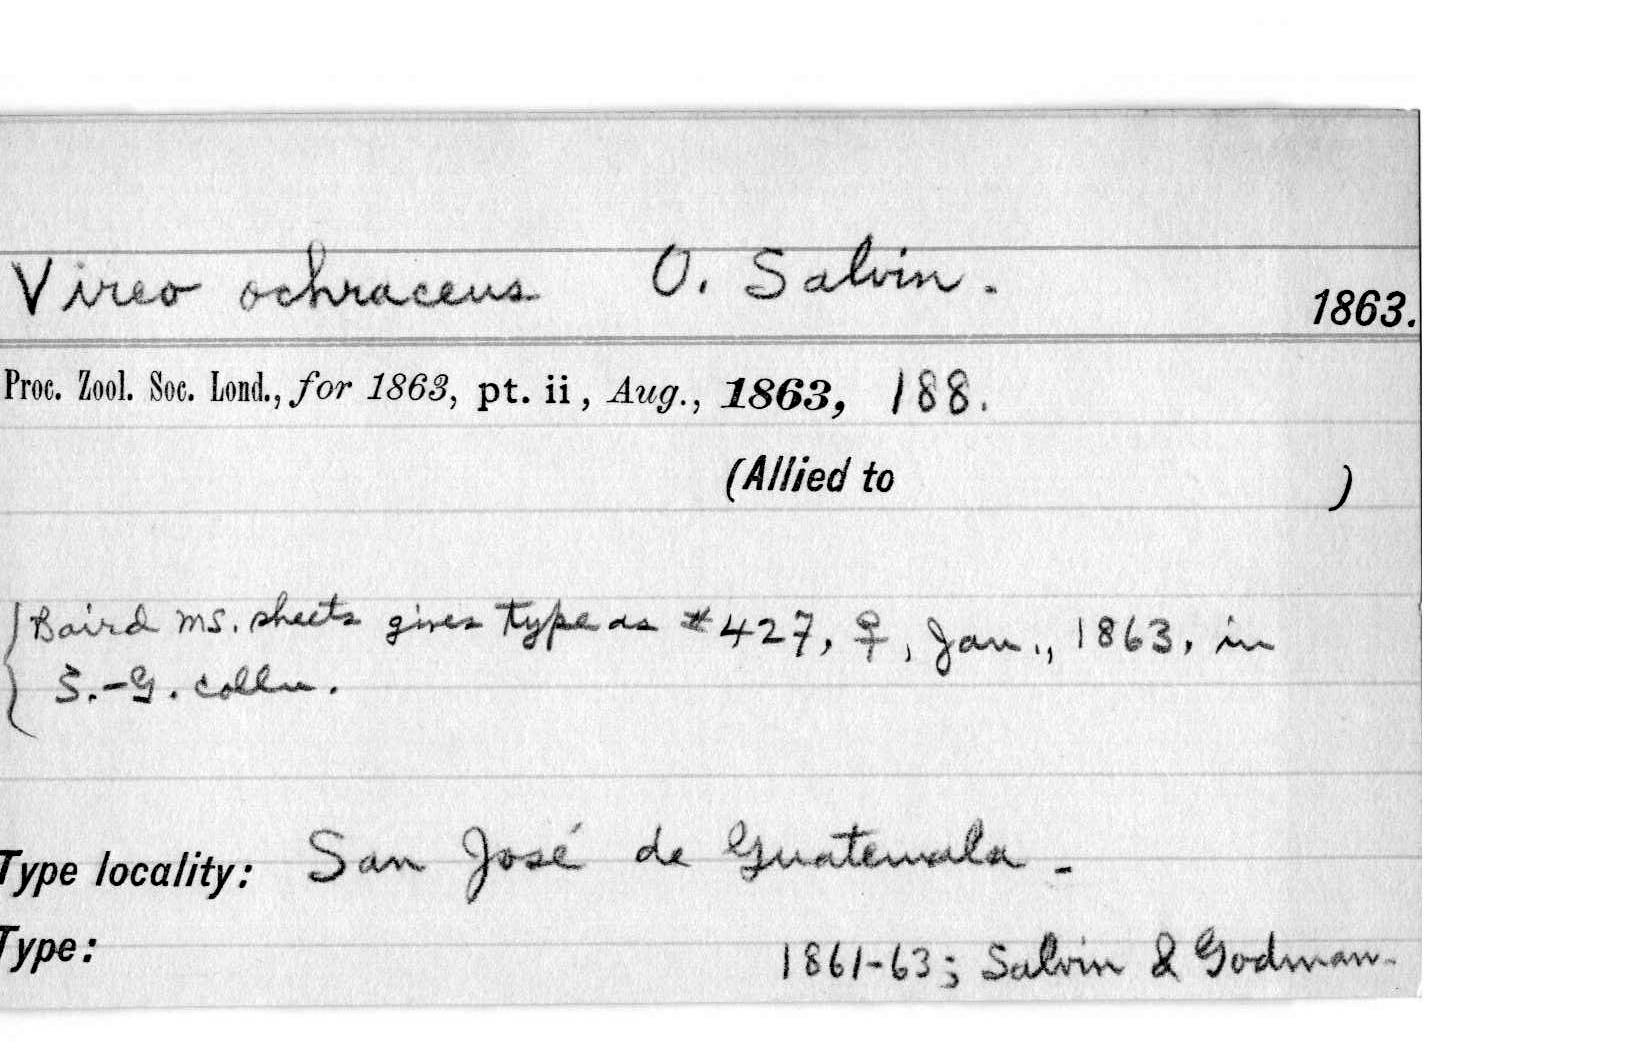 Vireo ochraceus O. Salvin. 1863.
Proc. Zool. Soc. Lond., for 1863, pt. ii, Aug., 1863, 188.
(Allied to )
Baird MS. sheets gives type as #427, ♀, Jan., 1863, in
S.-G. colln.
Type locality: San José de Guatemala -
Type: 1861-63; Salvin & Godman.